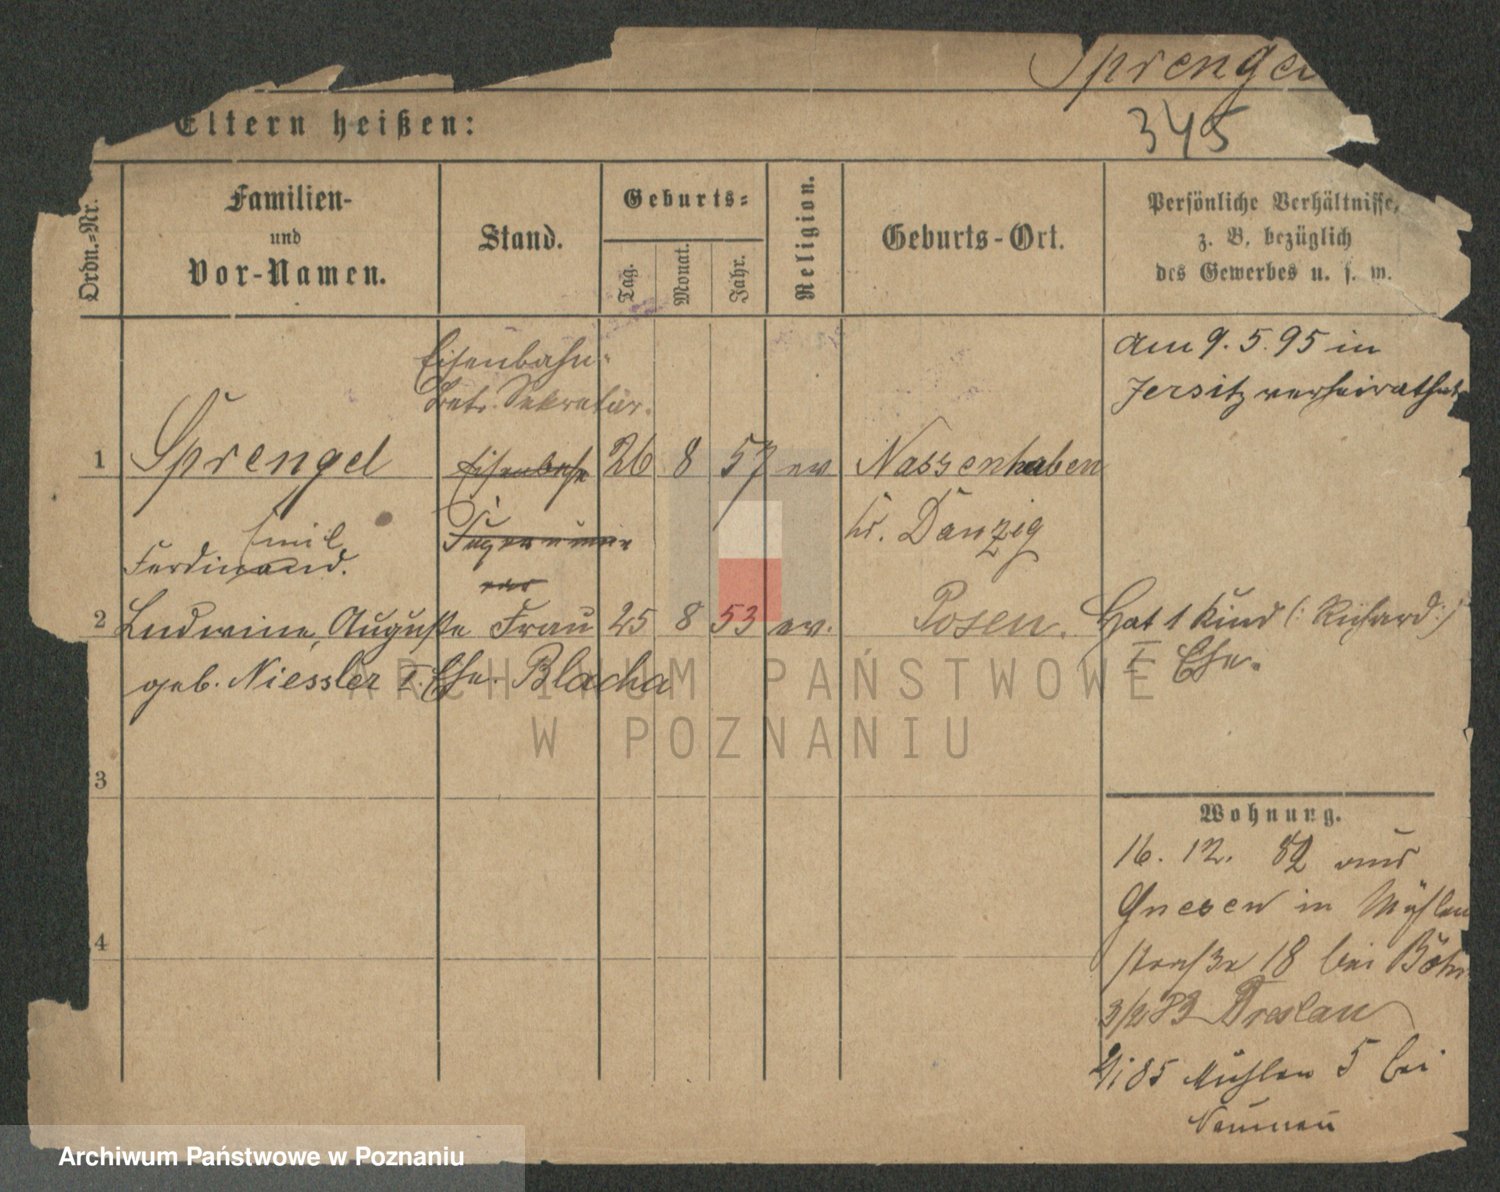 Sprengel
345
Eltern heißen:
Ordn.-Nr.
Familien-
und
Vor-Namen.
Stand.
Geburts-
Tag.
Monat.
Jahr.
Religion.
Geburts-Ort.
Persönliche Verhältnisse,
z. B. bezüglich
des Gewerbes u. s. w.
Eisenbahn-
Betr. Sekretär.
am 9.5.95 in
Jersitz verheirathet
1 Sprengel Eisenbahn 26 8 57 ev Nassenhuben
Supernume
rar
Kr. Danzig
Emil
Ferdinand.
2 Ludwine, Auguste Frau 25 8 53 ev. Posen. Hat 1 Kind (: Richard :)
geb. Niessler I. Ehe. Blacha
I Ehe.
3
4
Wohnung.
16. 12. 82 aus
Gnesen in Mühlen
straße 18 bei Böhm
3/2 83 Breslau
85 Mühlen 5 bei
Neuman
ARCHIWUM PAŃSTWOWE
W POZNANIU
Archiwum Państwowe w Poznaniu